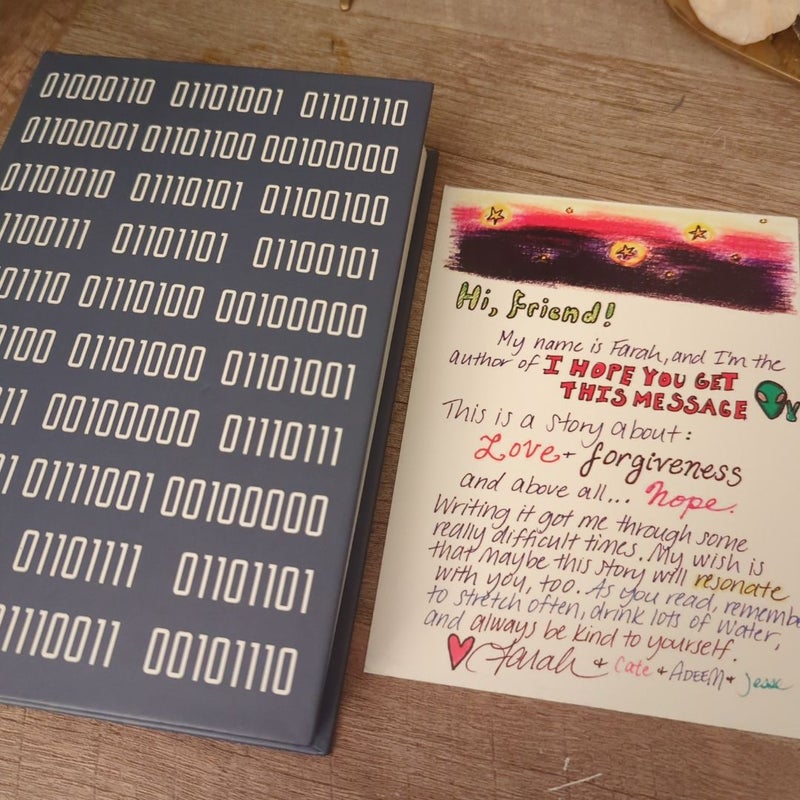 01000110 01101001 01101110
01100001 01101100 00100000
01101010 01110101 01100100
1100111 01101101 01100101
01110 01110100 00100000
100 01101000 01101001
11 00100000 01110111
1 01111001 00100000
01101111 01101101
1110011 00101110
Hi, friend!
My name is Farah, and I'm the
author of I HOPE YOU GET
THIS MESSAGE
This is a story about:
Love + forgiveness
and above all... hope.
Writing it got me through some
really difficult times. My wish is
that maybe this story will resonate
with you, too. As you read, remembe
to stretch often, drink lots of water,
and always be kind to yourself.
Farah + Cate + ADEEM + Jesse